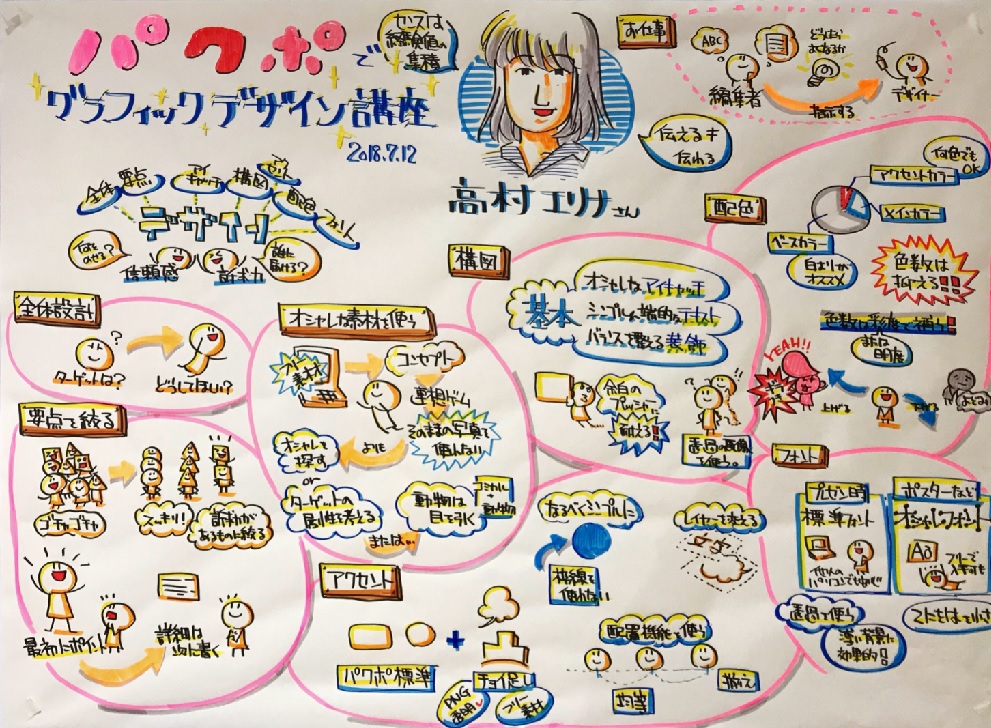 パクポで
グラフィックデザイン講座
2018.7.12
センスは
経験値の
集積
高村エリナさん
伝える≠
伝わる
お仕事
ABC
編集者
指示する
デザイナー
全体
要点
キャッチ
構図
配色
フォント
デザイン
何を
のせる?
信頼感
訴求力
誰に
届ける?
全体設計
ターゲットは?
どうしてほしい?
要点を絞る
ゴチャゴチャ
スッキリ!
訴求力が
あるものに絞る
最初にポイント
詳細は
次に書く
オシャレな素材を使う
フリー
素材
コンセプト
連想ゲーム
そのままの写真で
使わない
よせる
オシャレで
探す
or
ターゲットの
属性を考える
または…
動物は
目を引く
構図
基本
オシャレなアイキャッチ
シンプルで端的なテキスト
バランスで整える装飾
余白の
プレッシャーに
耐える!!
透過の画像
を使う。
配色
何色でも
OK
アクセントカラー
メインカラー
ベースカラー
白よりが
オススメ
色数は
抑える!!
色数は彩度で補う!!
または
明度
YEAH!!
上げる
下げる
フォント
プレゼン的
標準フォント
他の人の
パソコンでもなじむ
ポスターなど
オシャレフォント
Aあ
フリーで
入手可も
透過で使う
薄い背景に
効果的!!
アクセント
パクポ標準
+
チョイ足し
PNG
透明
フリー
素材
なるべくシンプルに
枠線を
使わない
レイヤーで考える
配置機能を使う
均等
揃え